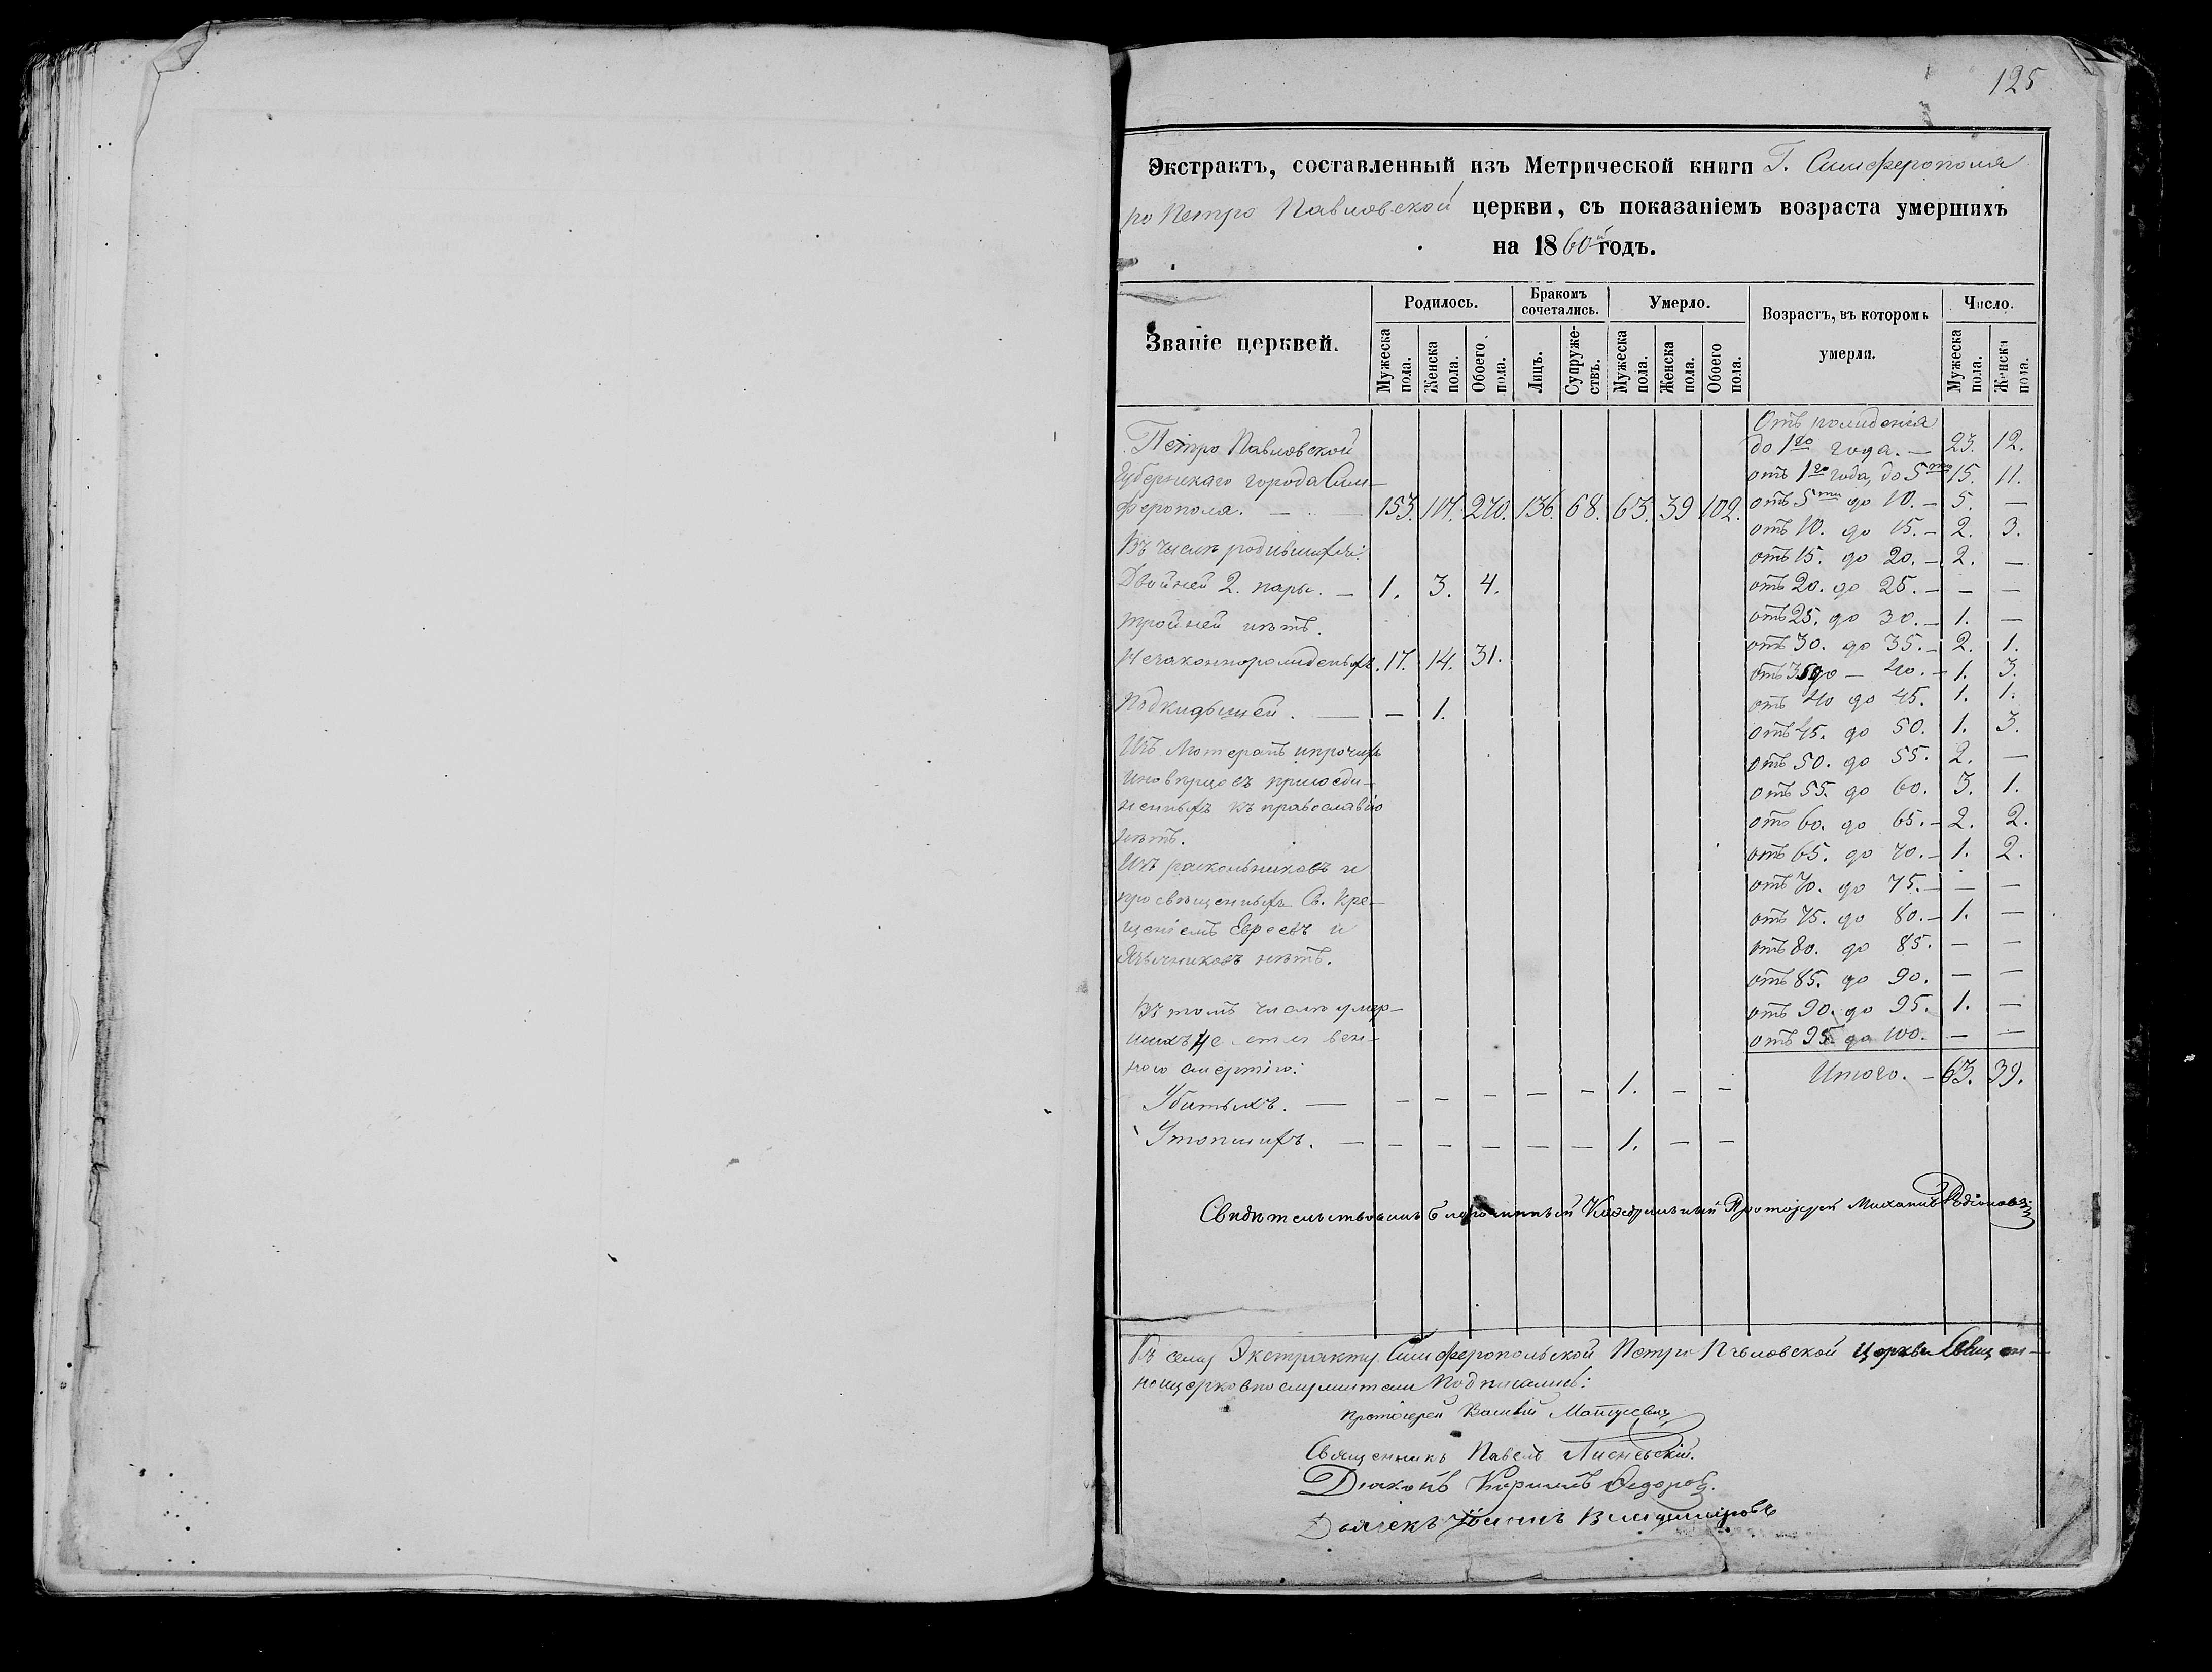 125
Экстрактъ, составленный изъ Метрической книги Г. Симферополя
по Петро Павловской церкви, съ показаніемъ возраста умершихъ
на 1860й годъ.
Званіе церквей.
Родилось.
Бракомъ сочетались.
Умерло.
Возрастъ, въ которомъ умерли.
Число.
Мужеска пола.
Женска пола.
Обоего пола.
Лицъ.
Супружествъ.
Мужеска пола.
Женска пола.
Обоего пола.
Мужеска пола.
Женска пола.
Петро Павловской
Губернскаго города Сим-
ферополя. 153. 117. 270. 136. 68. 63. 39 102.
Въ числѣ родившихся:
Двойней 2. пары. — 1. 3. 4.
Тройней нѣтъ.
Незаконнорожденныхъ. 17. 14. 31.
Подкидышей. — — 1.
Изъ Лютеранъ и прочихъ
иновѣрцовъ присоеди-
ненныхъ къ православію
нѣтъ.
Изъ раскольниковъ и
просвѣщенныхъ Св. Кре-
щеніемъ Евреевъ и
Язычниковъ нѣтъ.
Въ томъ числѣ умер-
шихъ не естествен-
ною смертію:
Убитыхъ. — — — — — — 1. — —
Утопшихъ. — — — — — — 1. — —
Отъ рожденія
до 1го года. — 23. 12.
отъ 1го года до 5ти 15. 11.
отъ 5ти до 10. — 5. —
отъ 10. до 15. — 2. 3.
отъ 15. до 20. — 2. —
отъ 20. до 25. — — —
отъ 25. до 30. — 1. —
отъ 30. до 35. — 2. 1.
отъ 35 до — 40. — 1. 3.
отъ 40 до 45. 1. 1.
отъ 45. до 50. 1. 3.
отъ 50. до 55. 2. —
отъ 55. до 60. 3. 1.
отъ 60. до 65. — 2. 2.
отъ 65. до 70. — 1. 2.
отъ 70. до 75. — — —
отъ 75. до 80. — 1. —
отъ 80. до 85. — —
отъ 85. до 90. — —
отъ 90. до 95. 1. —
отъ 95. до 100. — —
Итого. — 63. 39.
Свидѣтельствовалъ Благочинный Каѳедральный Протоіерей Михаилъ Родіоновъ
Къ сему Экстракту Симферопольской Петро Павловской Церкви Священ-
ноцерковнослужители подписались:
Протоіерей Василій
Священникъ Павелъ
Діаконъ Кириллъ Ѳедоровъ.
Дьячекъ Іоаннъ Владиміровъ